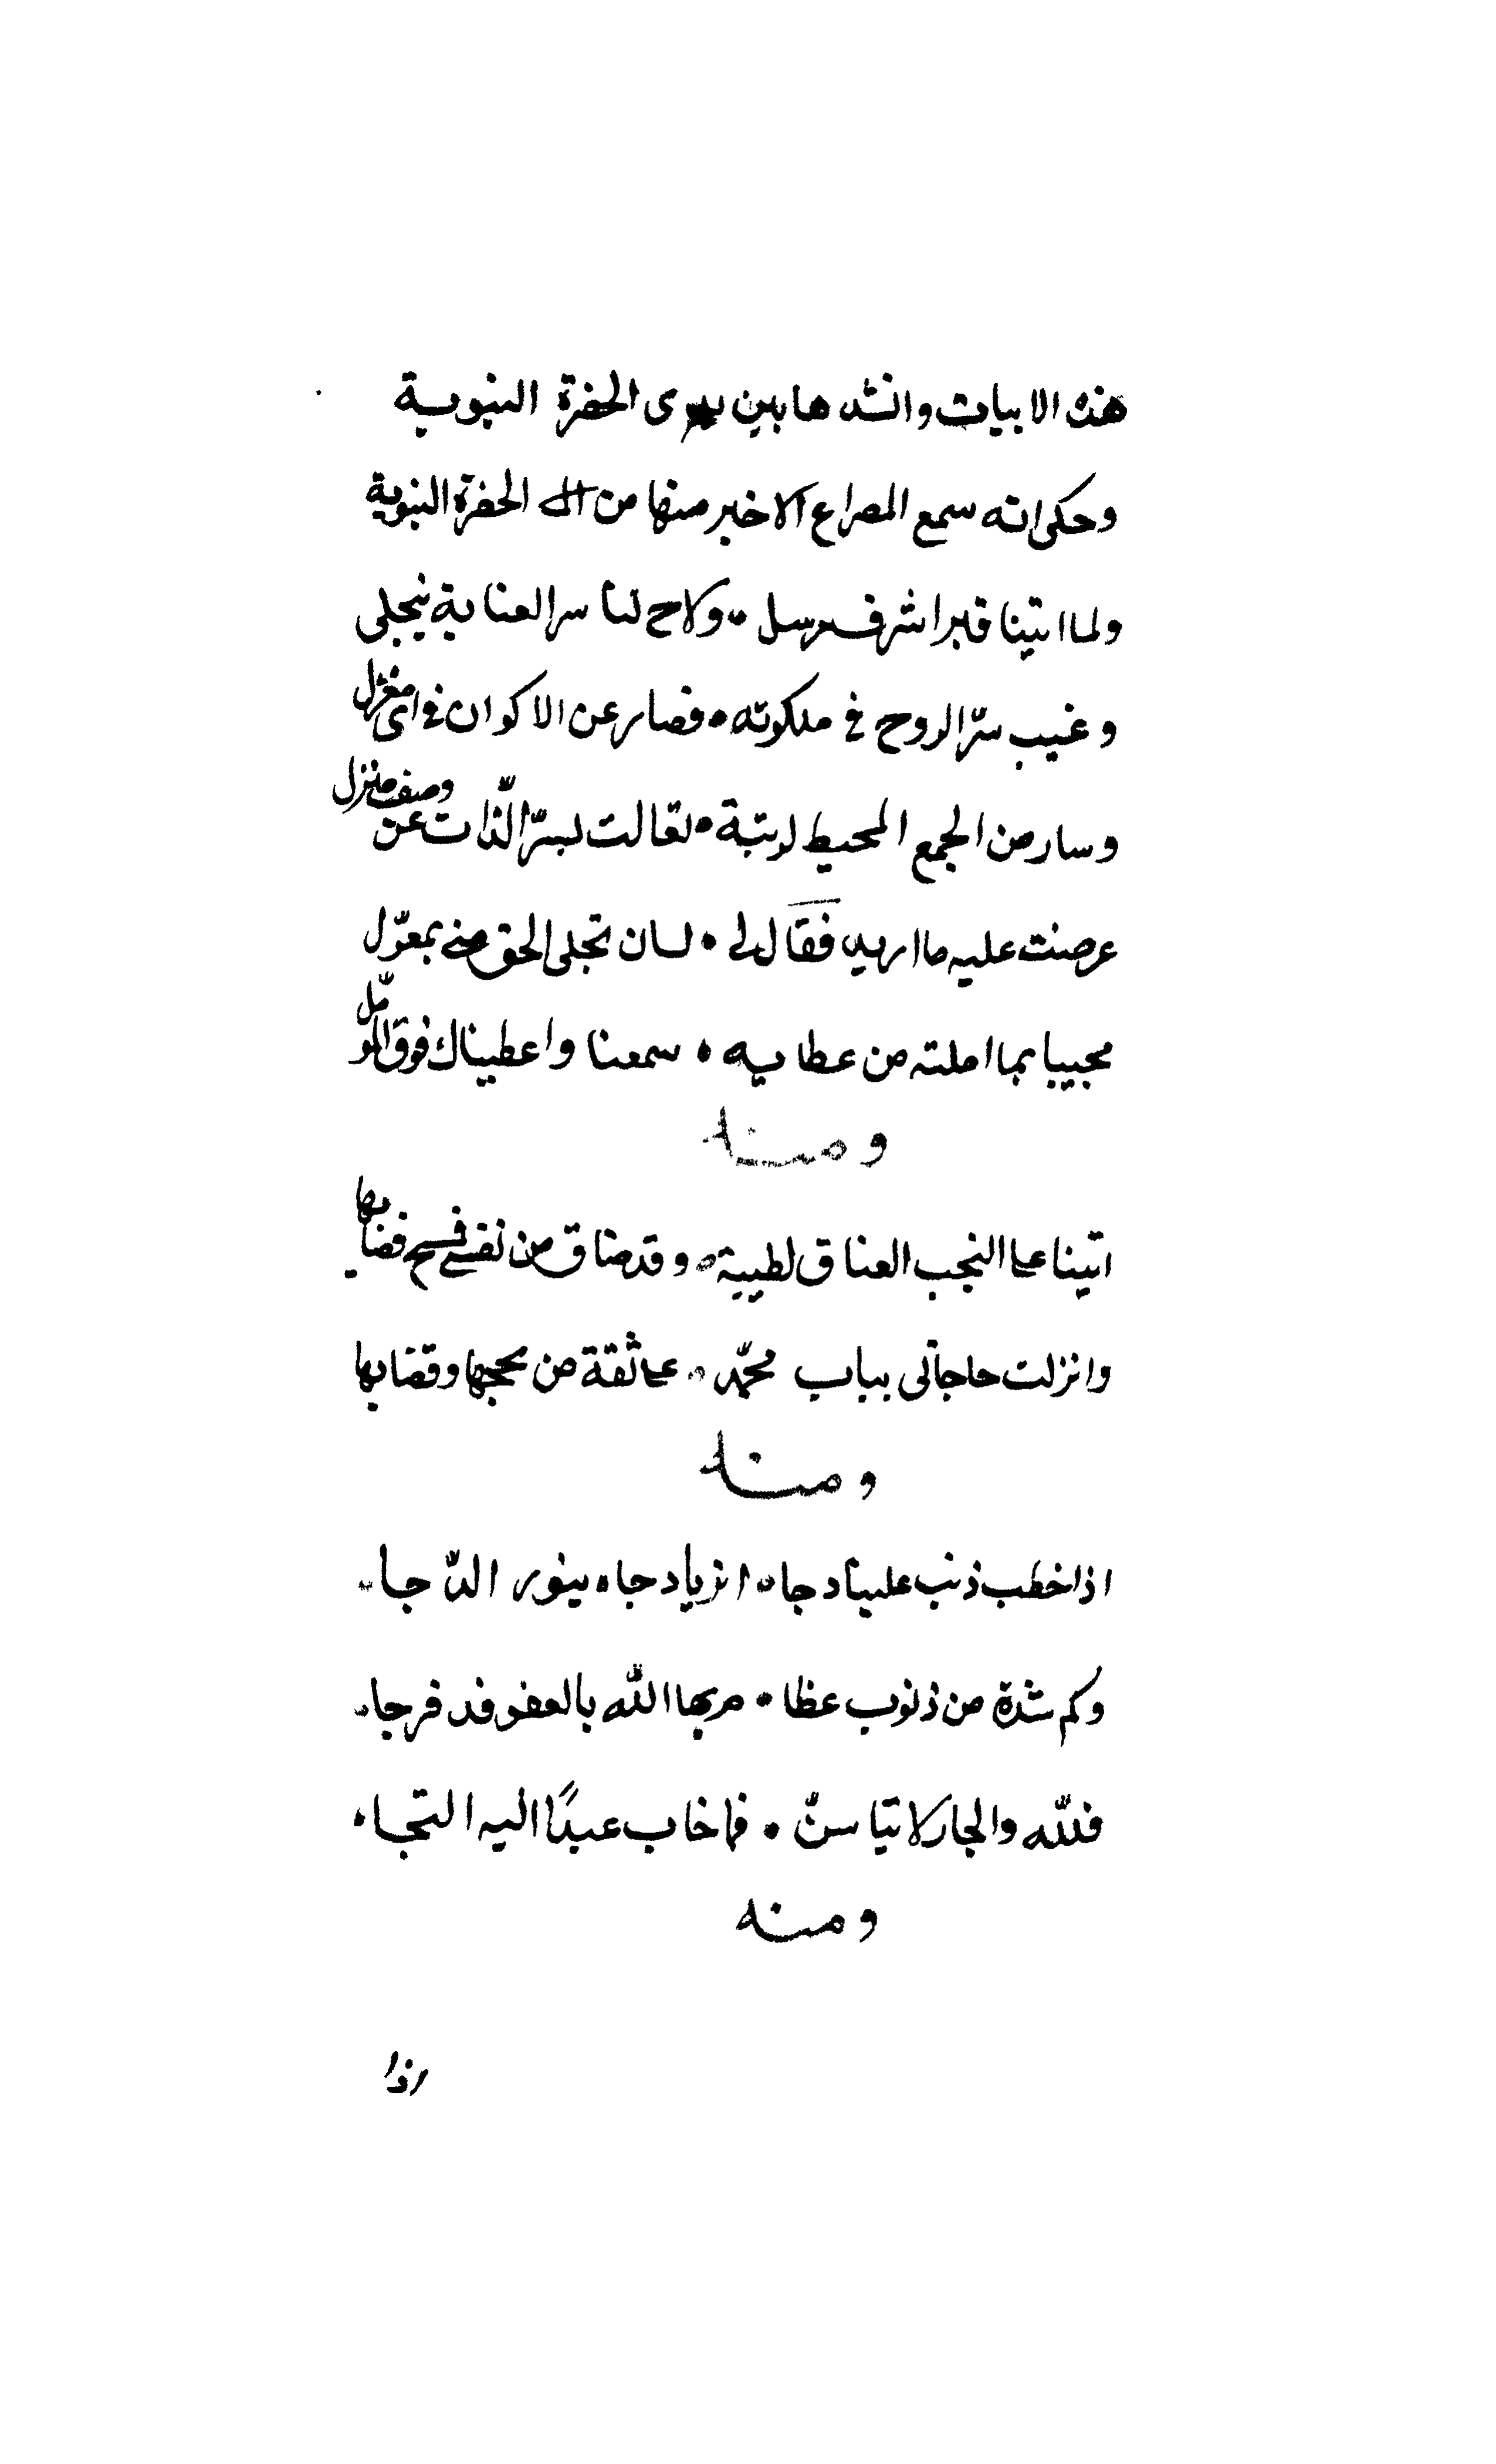 هذه الابيات وانشدها بين يدى الحضرة النبوية
وحكى انه سمع المصراع الاخير منها من الحضرة النبوية
ولما اتينا قبر اشرف مرسل • ولاح لنا سر العناية ينجلى
وغيب سرّ الروح في ملكوته • فصار عن الاكوان في اى مغزل
وسار من الجمع المحيط لرتبة • تعالت لسرّ الذّات عن وصف منزل
عرضت عليه ما اريد فقال لى • لسان تجلى الحق منى بمعوّل
مجيبا بما املته من عطايه • سمعنا واعطيناك فوق المؤمّل
ومنه
اتينا على النجب العتاق لطيبة • وقد ضاق من نفسى فسيح فضايها
وانزلت حاجاتى بباب محمّد • على ثقة من نجحها وقضايها
ومنه
اذا خطب ذنب علينا دجا • ازياد جاه بنور الدّجا
وكم شدة من ذنوب عظا • م بها الله بالعفو قد فرجا
فلله والجار لا تياسنّ • فما خاب عبدًا اليه التجا
ومنه
اذا